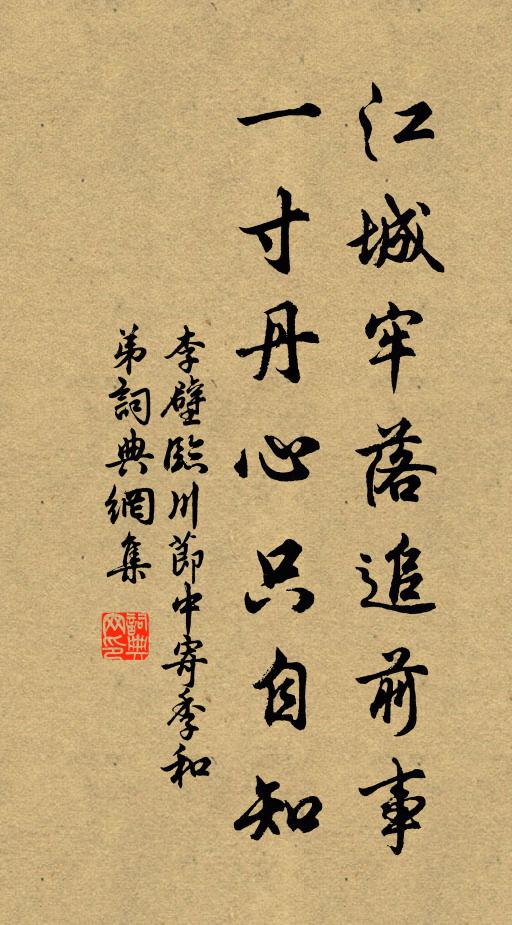 江城牢落追前事
一寸丹心只自知
李壁臨川節中寄季和
弟詞典網集
詞典網印